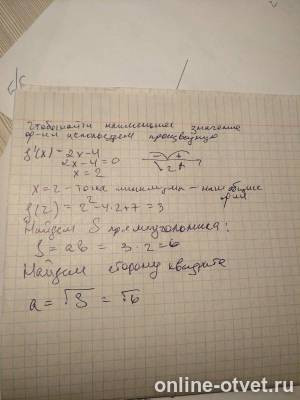 Чтобы найти наименьшее значение
ф-ии используем производную
f'(x) = 2x-4
2x-4=0
x=2
- +
2
x=2 - точка минимума -
f(2) = 2²-4·2+7=3
Найдем S прямоугольника:
S = ab = 3·2=6
Найдем сторону квадрата
a = √S = √6
online-otvet.ru